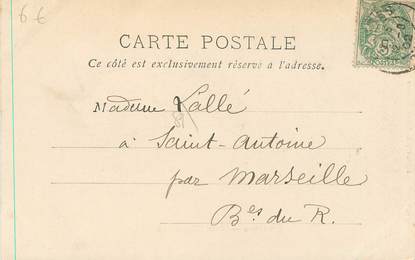 6 €
CARTE POSTALE
Ce côté est exclusivement réservé à l'adresse.
Madame Lallé
à Saint-Antoine
par Marseille
B.es du R.